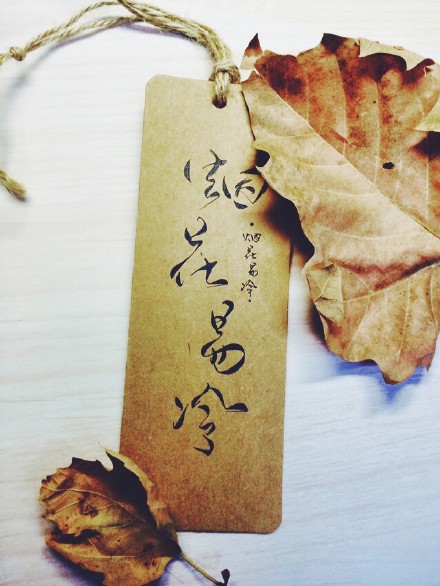 烟花易冷
·烟花易冷·